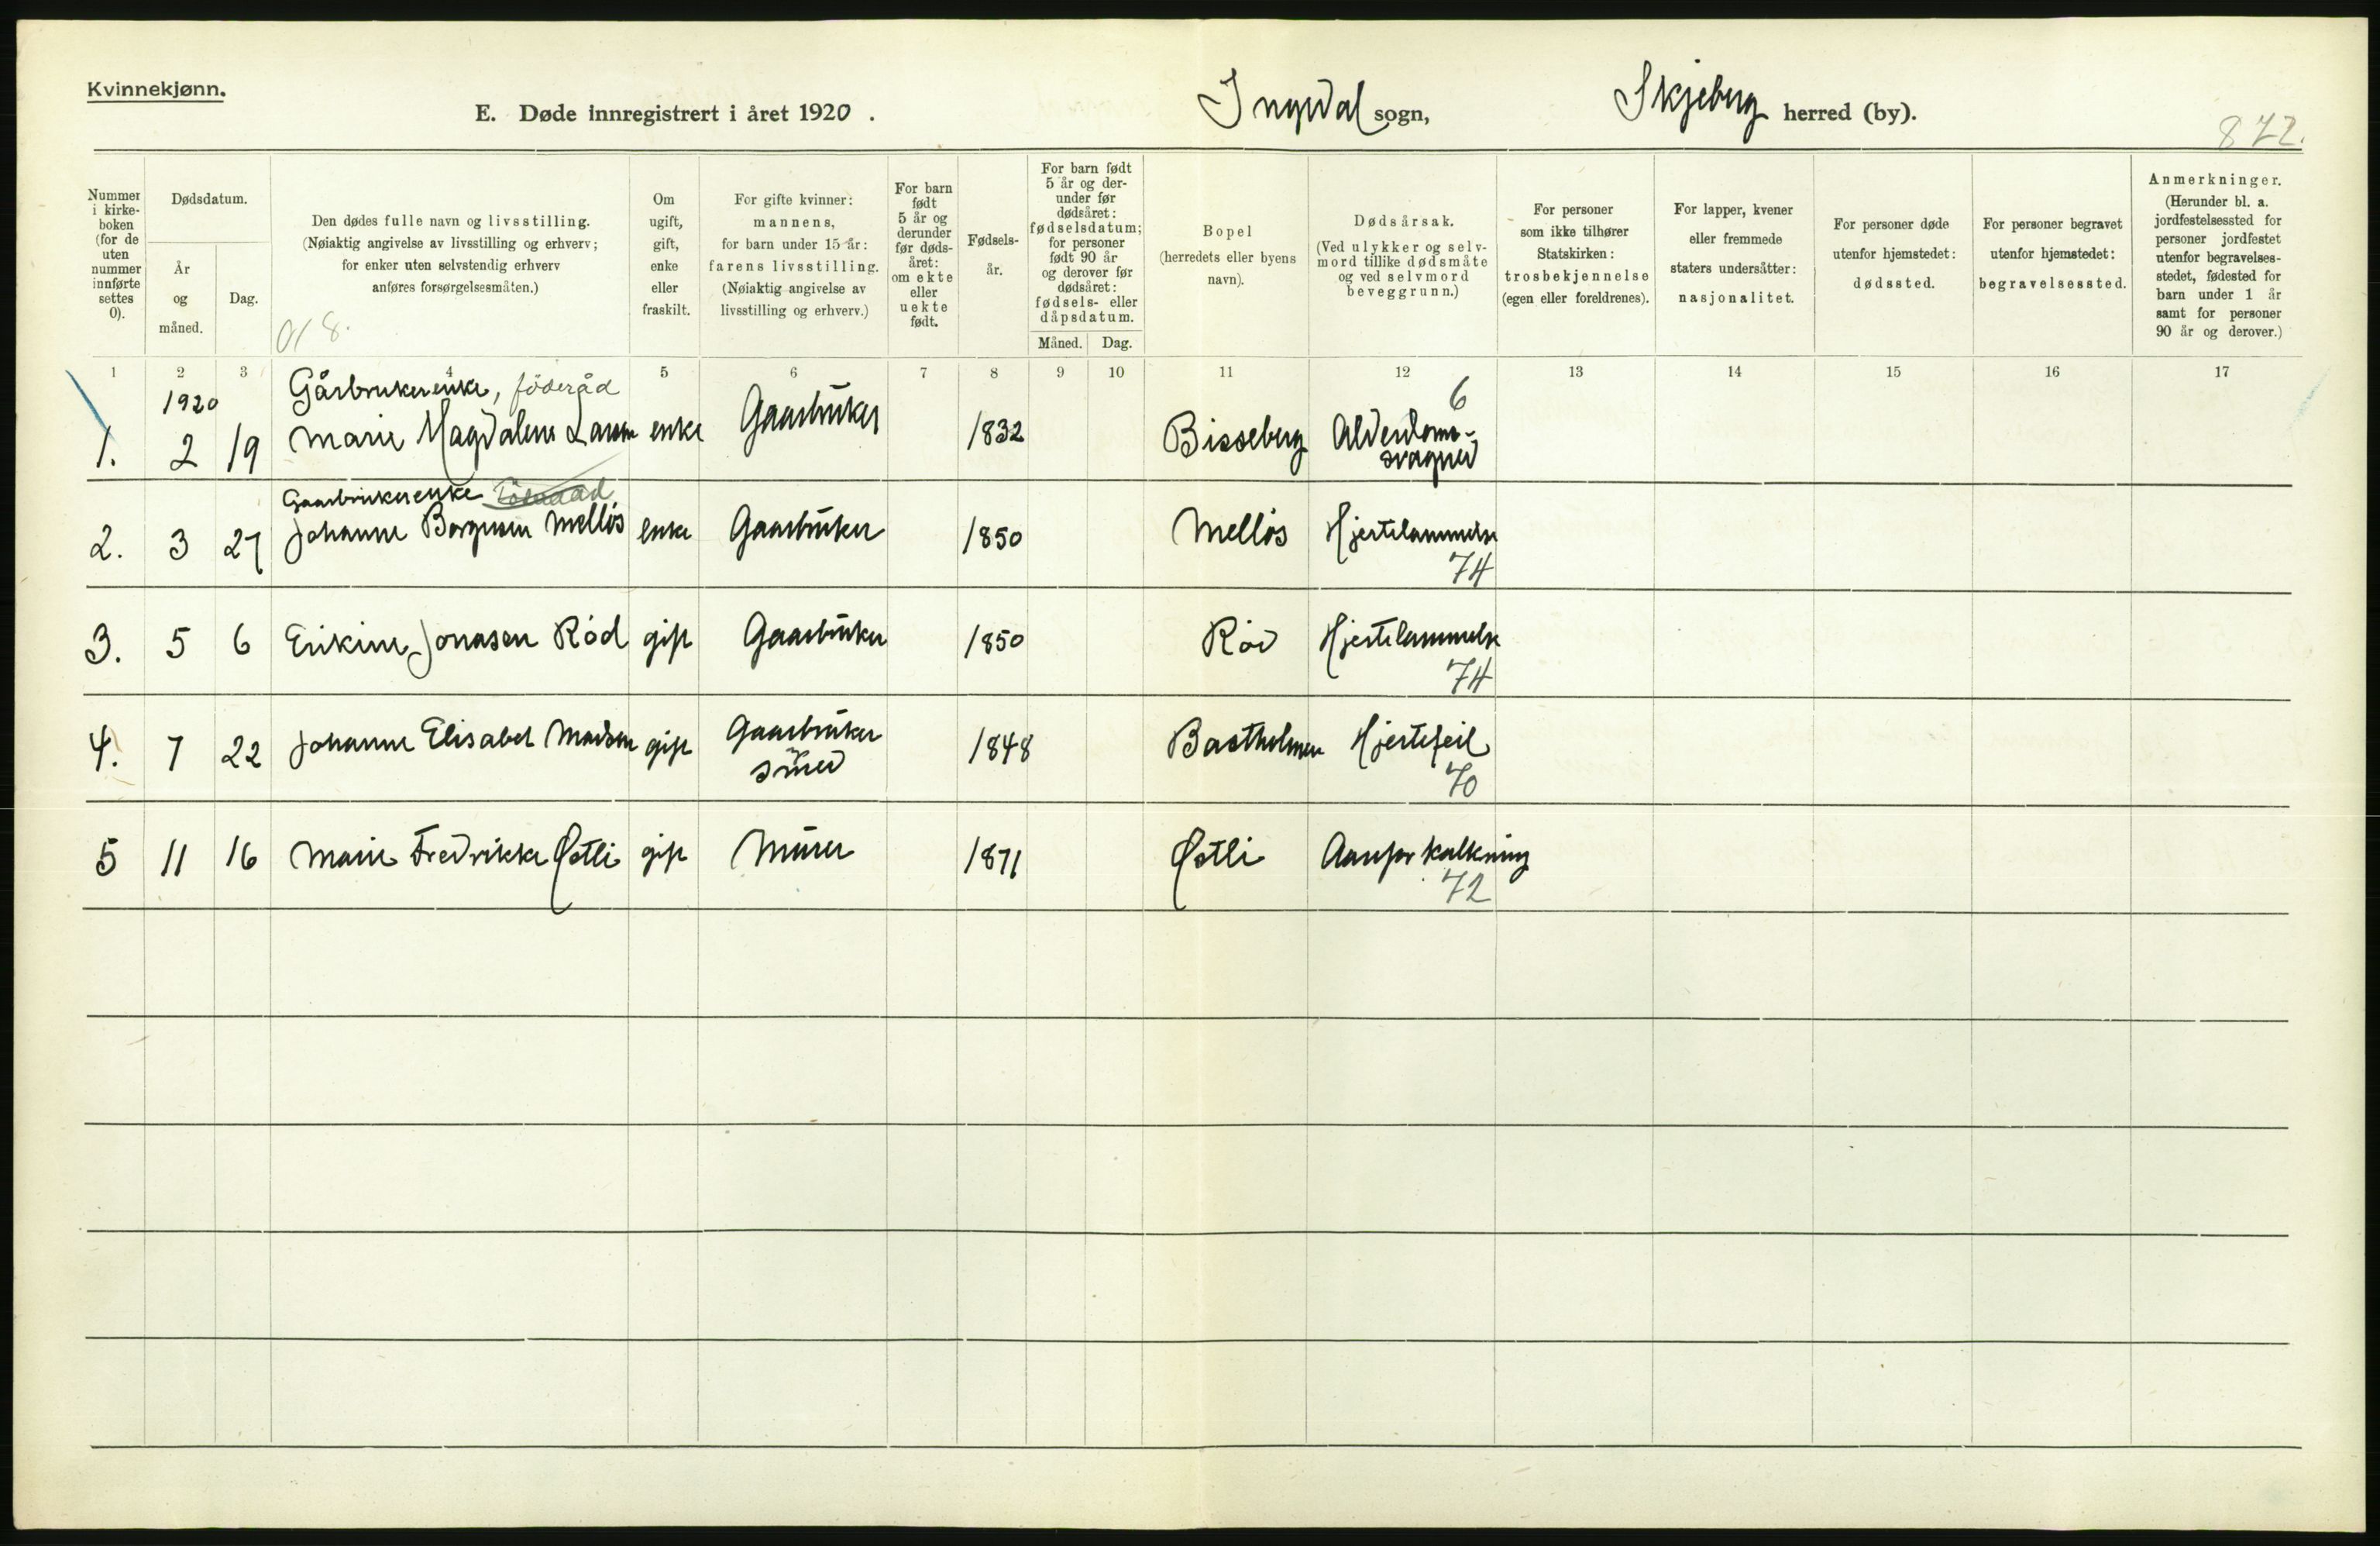 Kvinnekjønn.
E. Døde innregistrert i året 1920 . Ingedal sogn, Skjeberg herred (by).
872.
Nummer i kirke-boken (for de uten nummer innførte settes 0).
Dødsdatum.
År og måned.
Dag.
Den dødes fulle navn og livsstilling.
(Nøiaktig angivelse av livsstilling og erhverv;
for enker uten selvstendig erhverv
anføres forsørgelsesmåten.)
Om ugift, gift, enke eller fraskilt.
For gifte kvinner:
mannens,
for barn under 15 år:
farens livsstilling.
(Nøiaktig angivelse av
livsstilling og erhverv.)
For barn født 5 år og derunder før døds-året: om ekte eller uekte født.
Fødsels-år.
For barn født 5 år og der-under før dødsåret: fødselsdatum; for personer født 90 år og derover før dødsåret: fødsels- eller dåpsdatum.
Måned. Dag.
Bopel
(herredets eller byens
navn).
Dødsårsak.
(Ved ulykker og selv-
mord tillike dødsmåte
og ved selvmord
beveggrunn.)
For personer
som ikke tilhører
Statskirken:
trosbekjennelse
(egen eller foreldrenes).
For lapper, kvener
eller fremmede
staters undersåtter:
nasjonalitet.
For personer døde
utenfor hjemstedet:
dødssted.
For personer begravet
utenfor hjemstedet:
begravelsessted.
Anmerkninger.
(Herunder bl. a.
jordfestelsessted for
personer jordfestet
utenfor begravelses-
stedet, fødested for
barn under 1 år
samt for personer
90 år og derover.)
1 2 3 4 5 6 7 8 9 10 11 12 13 14 15 16 17
1920 Gårbrukerenke, föderåd 6
1. 2 19 Marie Magdalene Larsen enke Gaarbruker 1832 Bisseberg Alderdoms-
svaghed
Gaarbrukerenke
2. 3 27 Johanne Mellös enke Gaarbruker 1850 Mellös Hjertelammelse
74
3. 5 6 Erikine Jonasen Röd gift Gaarbruker 1850 Röd Hjertelammelse
74
4. 7 22 Johanne Elisabet Madsen gift Gaarbruker 1848 Bastholmen Hjertefeil
70
5 11 16 Marie Fredrikke Østli gift Murer 1871 Østli Aareforkalkning
72